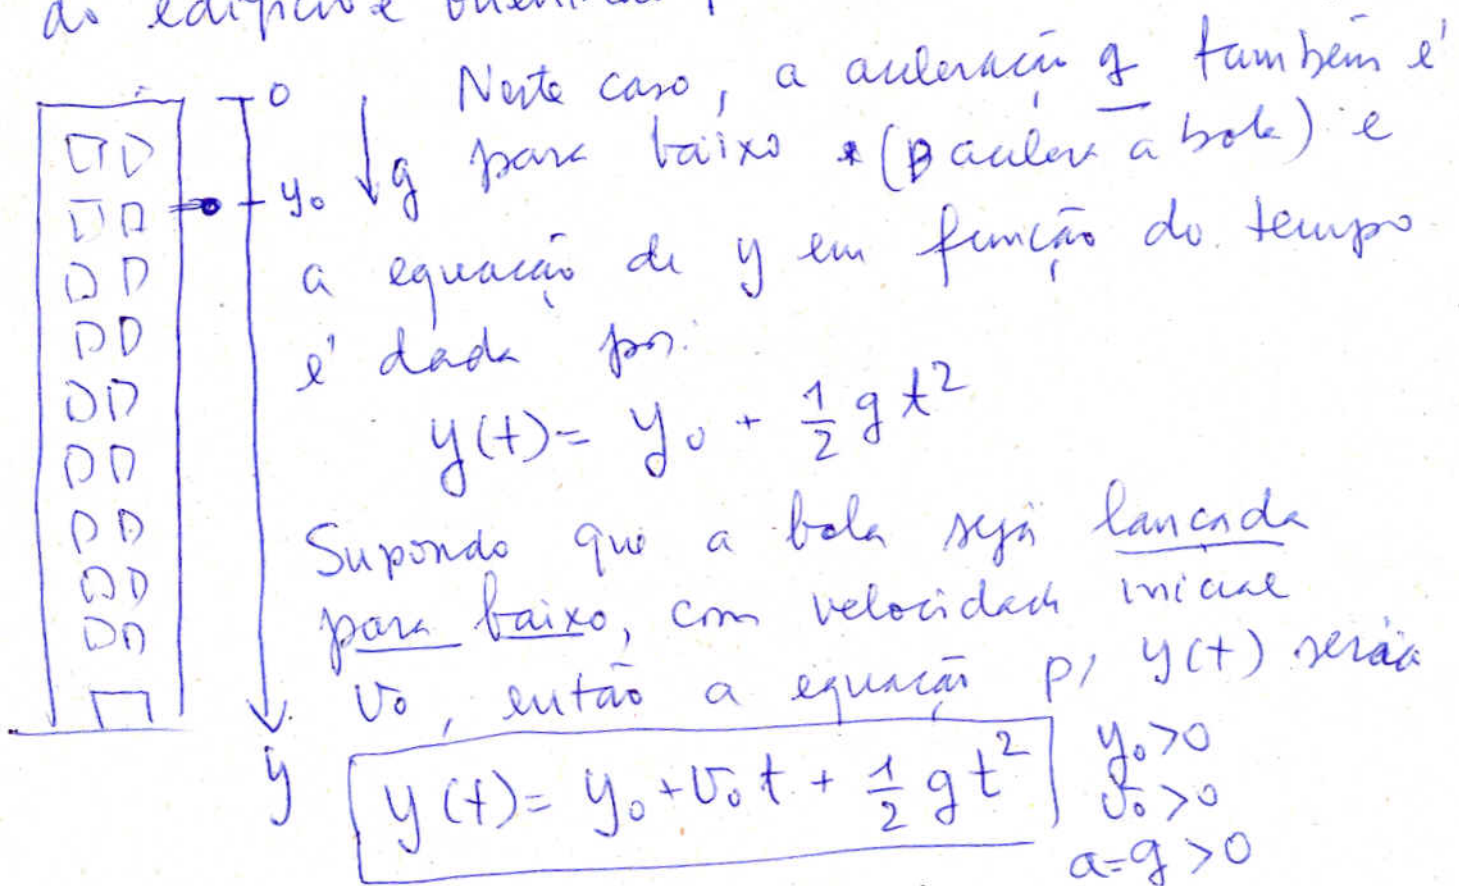 do edifício e
0
Neste caso, a aceleração g também é
y₀
g
para baixo (acelera a bola) e
a equação de y em função do tempo
é dada por:
y(t) = y₀ + 1/2 g t²
Supondo que a bola seja lançada
para baixo, com velocidade inicial
v₀, então a equação p/ y(t) será
y
y(t) = y₀ + v₀ t + 1/2 g t²
y₀ > 0
v₀ > 0
a = g > 0